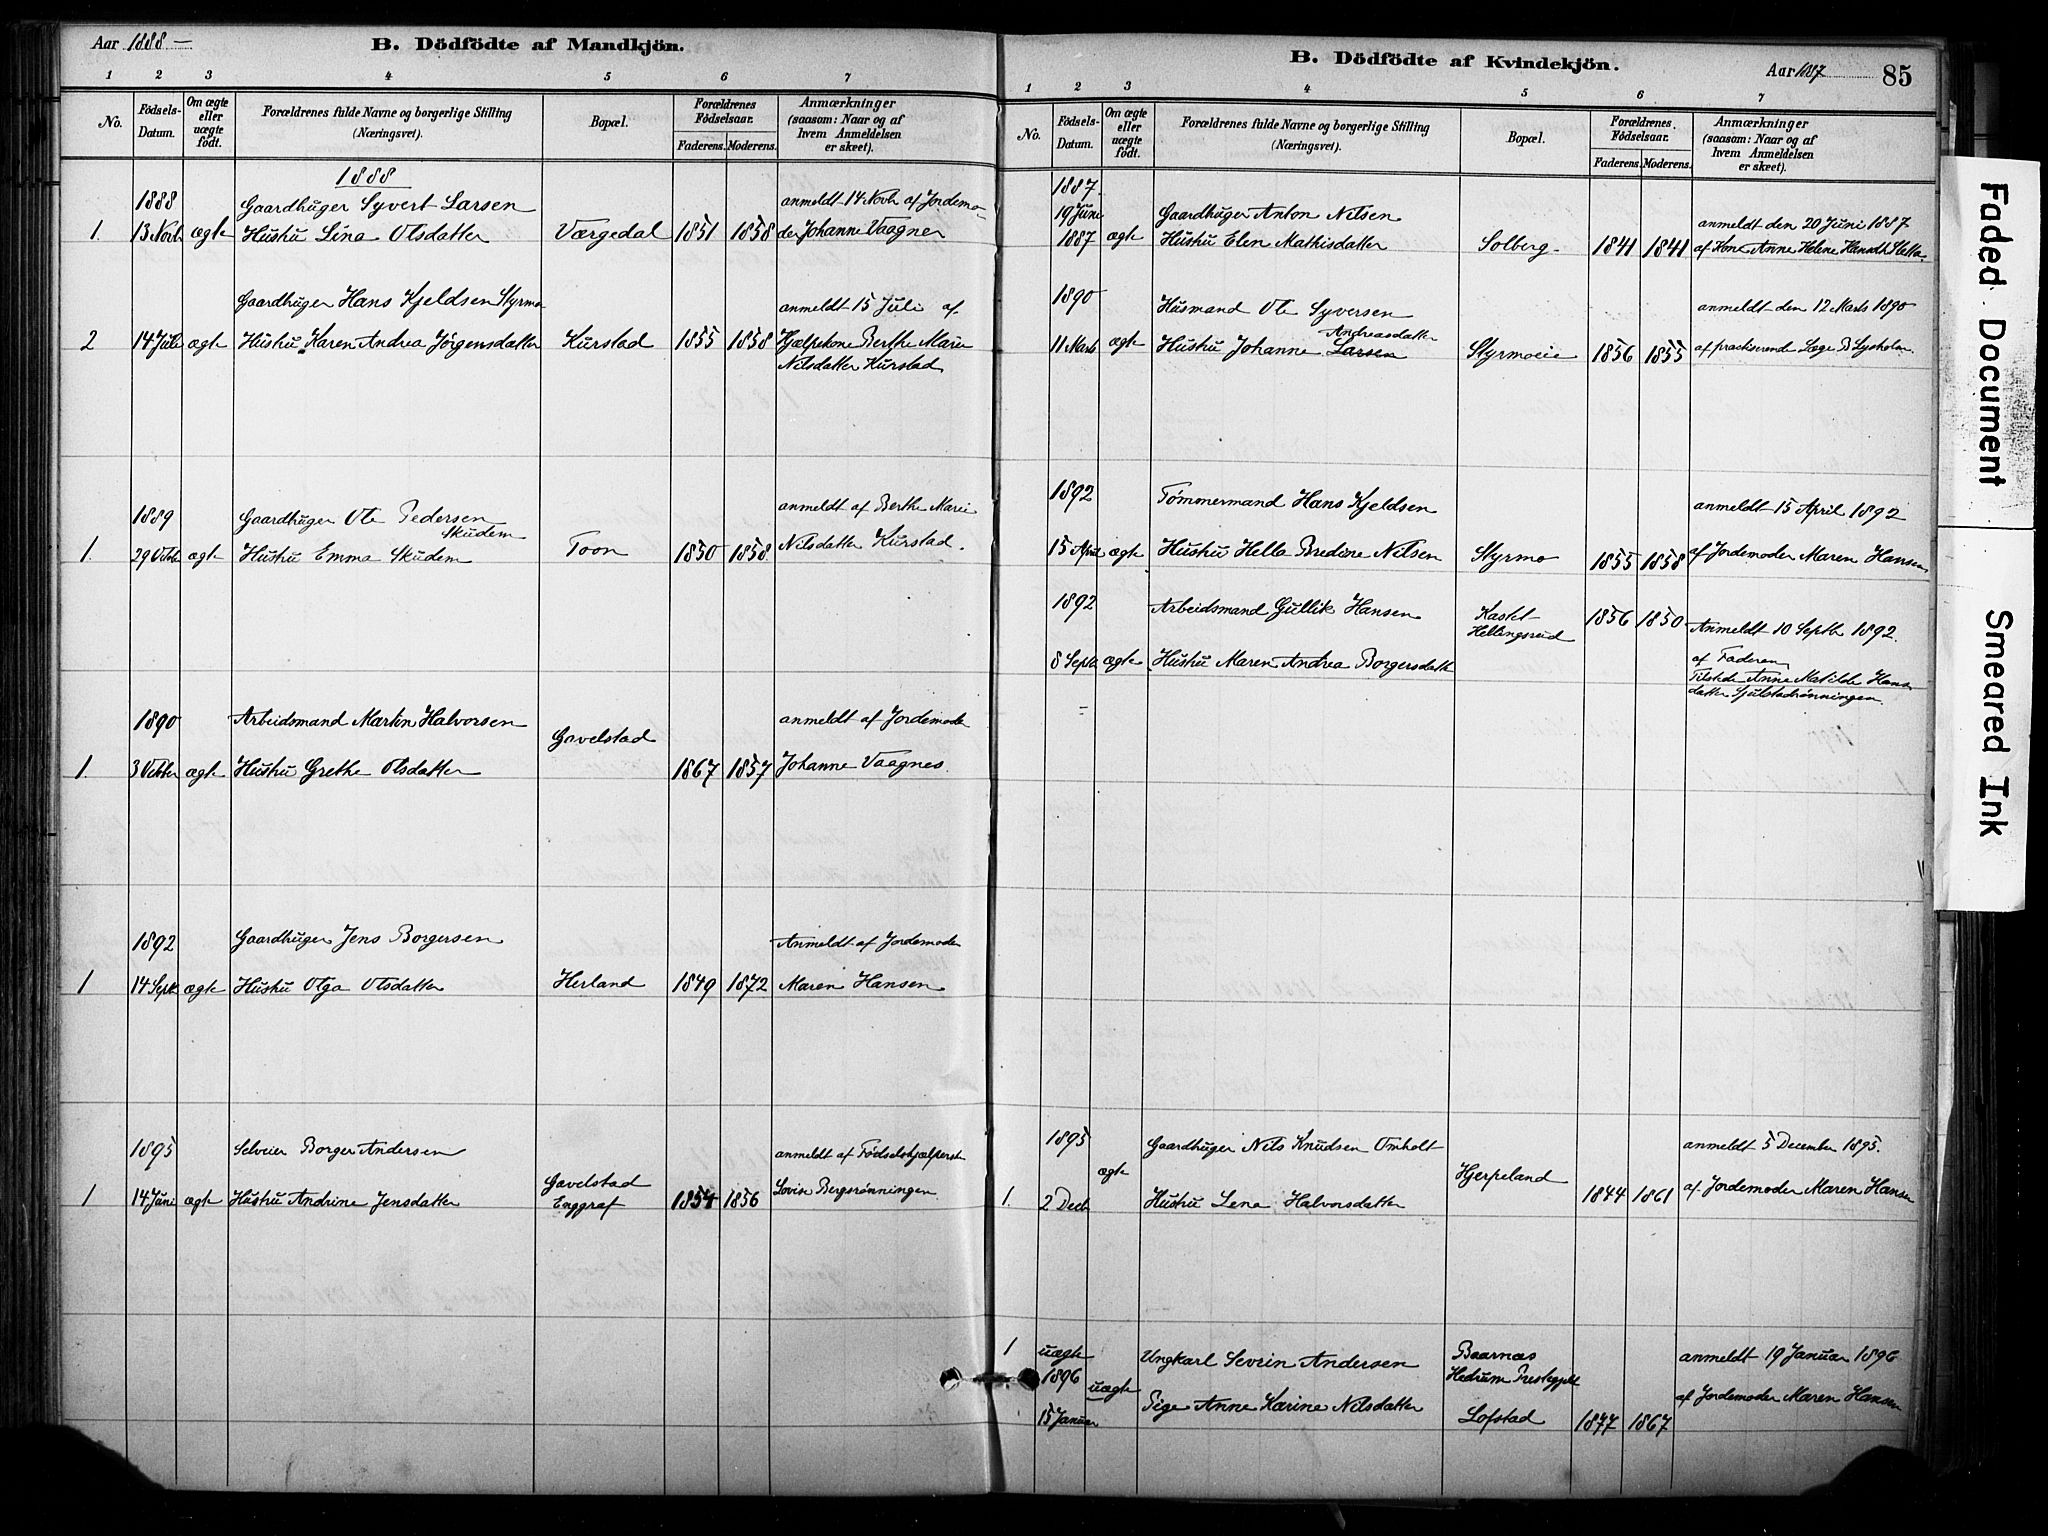 Aar 1888 —
B. Dödfödte af Mandkjön.
1 2 3 4 5 6 7
No.
Födsels-Datum.
Om ægte eller uægte födt.
Forældrenes fulde Navne og borgerlige Stilling (Næringsvei).
Bopæl.
Forældrenes Födselsaar.
Faderens. Moderens.
Anmærkninger (saasom: Naar og af hvem Anmeldelsen er skeet).
1888
1888 Gaardbruger Syvert Larsen anmeldt 14 Novb af Jordemo-
1. 13 Novb ægte Hustru Lina Olsdatter Værgedal 1851 1858 der Johanne Vaagnes
Gaardbruger Hans Kjeldsen Styrmo anmeldt 15 Juli af
2 14 Juli ægte Hustru Karen Andrea Jørgensdatter Kurstad 1855 1858 Hjælpekone Berthe Marie
Nilsdatter Kurstad
1889 Gaardbruger Ole Pedersen Skudem anmeldt af Berthe Marie
1. 29 Octbr ægte Hustru Emma Skudem Toon 1850 1858 Nilsdatter Kurstad.
1890 Arbeidsmand Martin Halvorsen Gavelstad anmeldt af Jordemoder
1. 3 Oktber ægte Hustru Grethe Olsdatter 1867 1857 Johanne Vaagnes.
1892 Gaardbruger Jens Borgersen Anmeldt af Jordemoder
1 14 Sept ægte Hustru Olga Olsdatter Herland 1849 1872 Maren Hansen
1895 Selveier Borger Andersen anmeldt af Fødselshjælpersk
1 14 Juni ægte Hustru Andrine Jensdatter Gavelstad Enggraf 1854 1856 Lovise Bergsrønningen
B. Dödfödte af Kvindekjön.
Aar 1887
85
1 2 3 4 5 6 7
No.
Födsels-Datum.
Om ægte eller uægte födt.
Forældrenes fulde Navne og borgerlige Stilling (Næringsvei).
Bopæl.
Forældrenes Födselsaar.
Faderens. Moderens.
Anmærkninger (saasom: Naar og af hvem Anmeldelsen er skeet).
1887.
19 Juni Gaardbruger Anton Nilsen anmeldt den 20 Juni 1887
1887 ægte Hustru Elen Mathisdatter Solberg 1841 1841 af Kone Anne Helene Hansdt
1890 Husmand Ole Syversen anmeldt den 12 Marts 1890
11 Marts ægte Hustru Johanne Andreasdatter Larsen Styrmoeie 1856 1855 af practiserende Læge B Lysholm
1892 Tømmermand Hans Kjeldsen anmeldt 15 April 1892
15 April ægte Hustru Hella Bredine Nilsen Styrmo 1855 1858 af Jordemoder Maren Hansen
1892 Arbeidsmand Gullik Hansen Kastet Hellingsrud 1856 1850 Anmeldt 10 Septb 1892.
8 Septb ægte Hustru Maren Andrea Borgersdatt af Faderen
Tilstede Anne Matilde Hans
datter Gjulstadrønningen
1895 Gaardbruger Nils Knudsen Omholt Hjerpeland anmeldt 5 December 1895.
1. 2 Decb ægte Hustru Lena Halvorsdatter 1844 1861 af Jordemoder Maren Hansen
1 uægte Ungkarl Sevrin Andersen Baarnæs anmeldt 19 Januar 1896
1896 uægte Hedrum Prestegjeld af Jordemoder Maren Hansen
15 Januar Pige Anne Karine Nilsdatter Lofstad 1877 1867
Faded Document
Smeared Ink